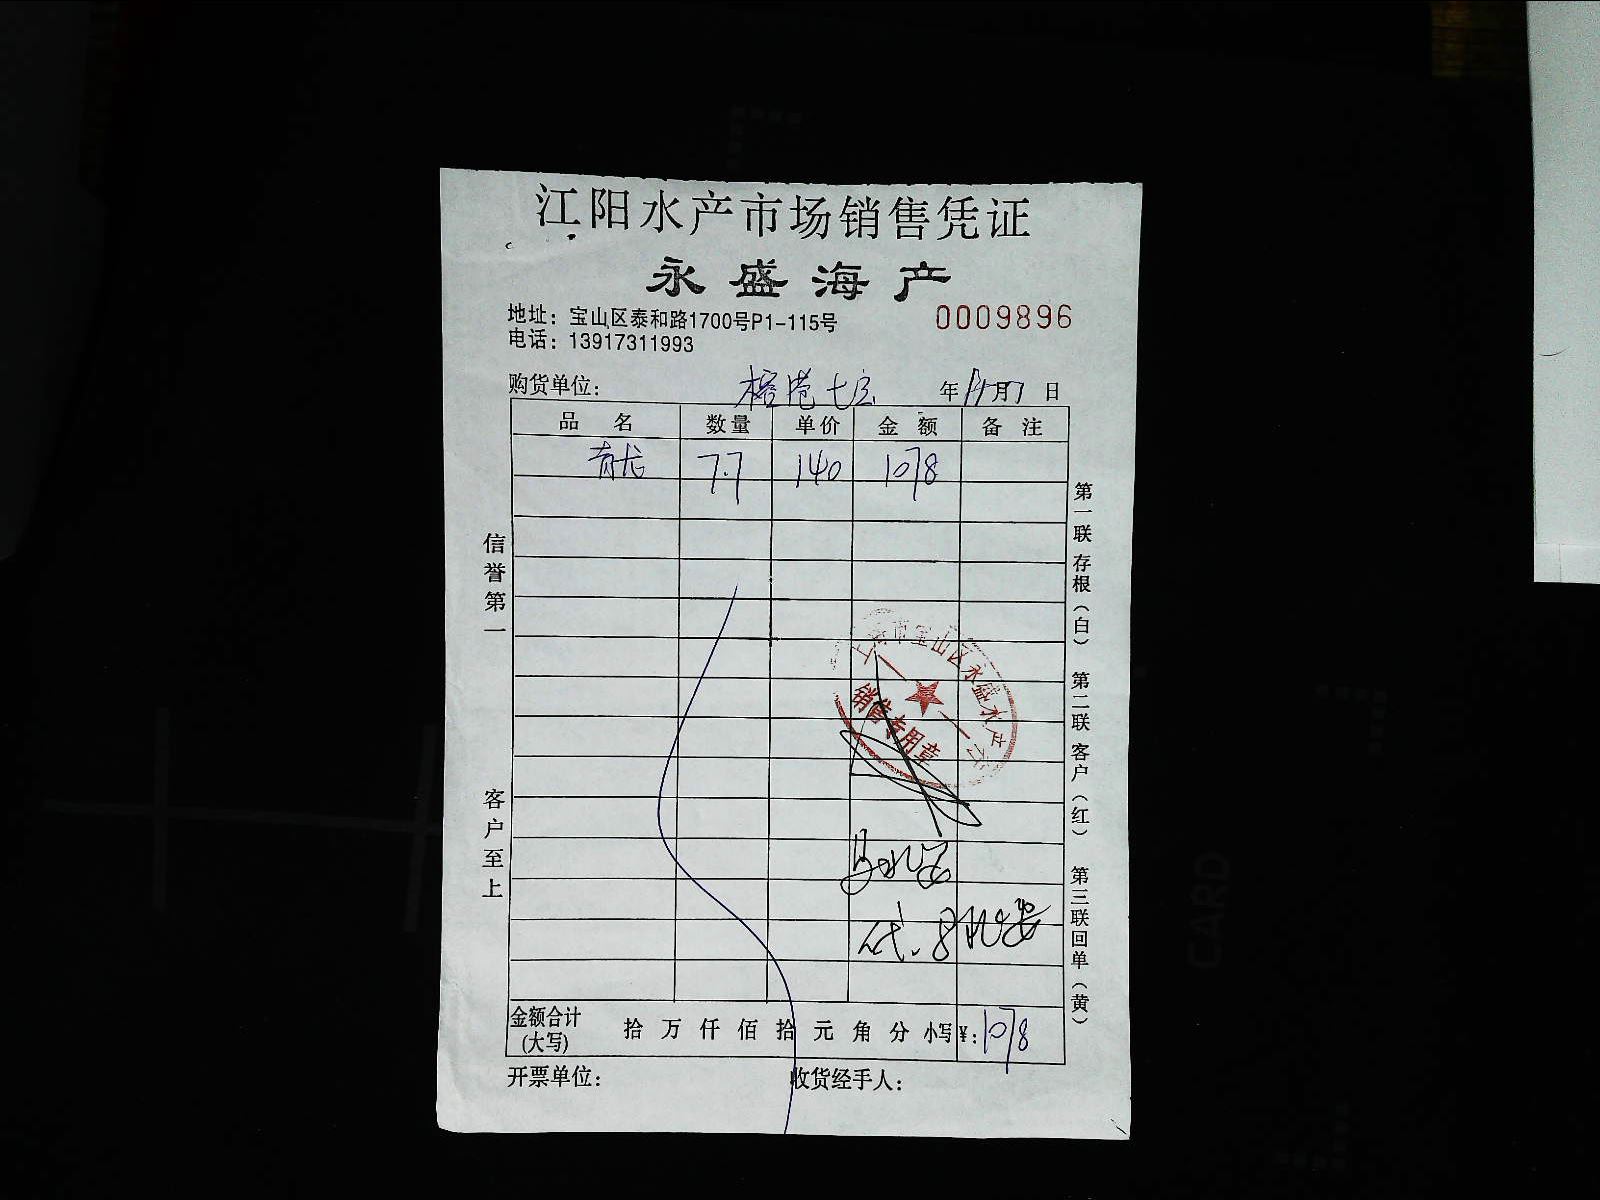 江阳水产市场销售凭证
永盛海产
地址：宝山区泰和路1700号P1-115号
0009896
电话：13917311993
购货单位： 榕港七宝 年 月 日
品名 数量 单价 金额 备注
青龙 7.7 140 1078
信誉第一
客户至上
第一联 存根（白） 第二联 客户（红） 第三联 回单（黄）
上海市宝山区永盛水产
销售专用章
金额合计(大写) 拾 万 仟 佰 拾 元 角 分 小写¥：1078
开票单位： 收货经手人：